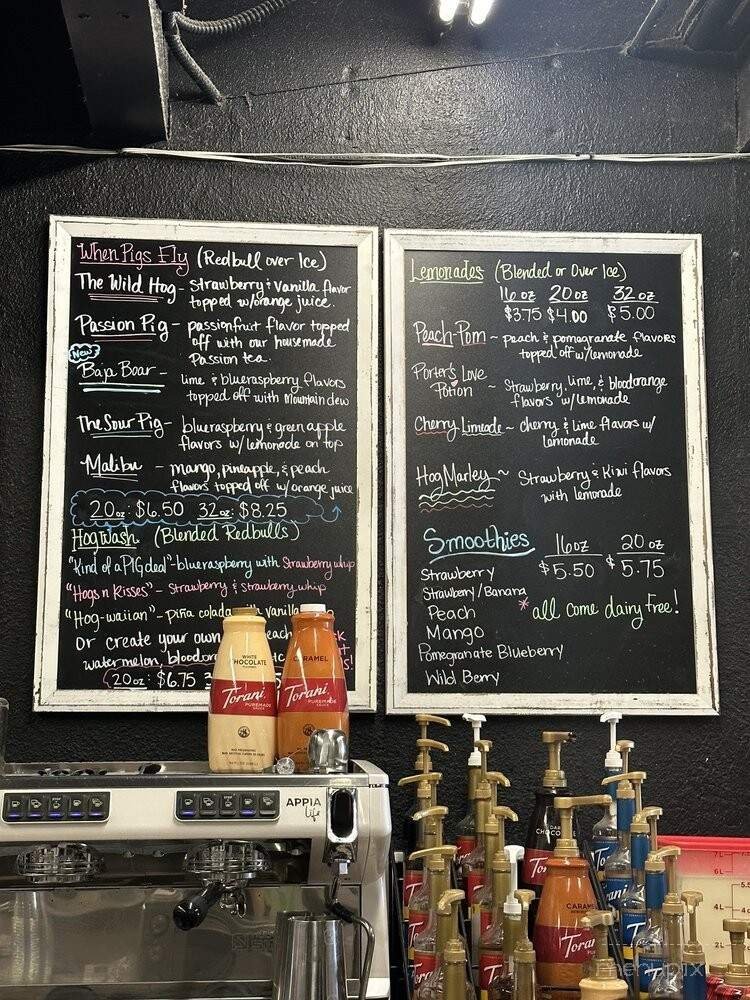 When Pigs Fly (Redbull over Ice)
The Wild Hog - Strawberry & vanilla flavor
topped w/orange juice.
Passion Pig - passionfruit flavor topped
off with our housemade
Passion tea.
New!
Baja Boar - lime & blueraspberry flavors
topped off with Mountain dew
The Sour Pig - blueraspberry & green apple
flavors w/ lemonade on top
Malibu - mango, pineapple, & peach
flavors topped off w/orange juice
20oz: $6.50 32oz: $8.25
Hogwash (Blended Redbulls)
"Kind of a PIG deal" - blueraspberry with Strawberry whip
"Hogs n Kisses" - Strawberry & Strawberry whip
"Hog-waiian" - Piña colada vanilla
or create your own each
watermelon, bloodor
20oz: $6.75
Lemonades (Blended or Over Ice)
16oz 20oz 32oz
$3.75 $4.00 $5.00
Peach-Pom ~ peach & pomegranate flavors
topped off w/lemonade
Porter's Love
Potion ~ Strawberry, lime, & bloodorange
flavors w/ lemonade
Cherry Limeade ~ cherry & lime flavors w/
Lemonade
Hog Marley ~ Strawberry & Kiwi flavors
with lemonade
Smoothies 16oz 20oz
$5.50 $5.75
Strawberry
Strawberry/Banana
Peach
Mango
Pomegranate Blueberry
Wild Berry
* all come dairy free!
WHITE
CHOCOLATE
Torani
PUREMADE
SAUCE
CARAMEL
Torani
PUREMADE
SAUCE
APPIA
life
DARK
CHOCO
CARAMEL
Torani
menupix